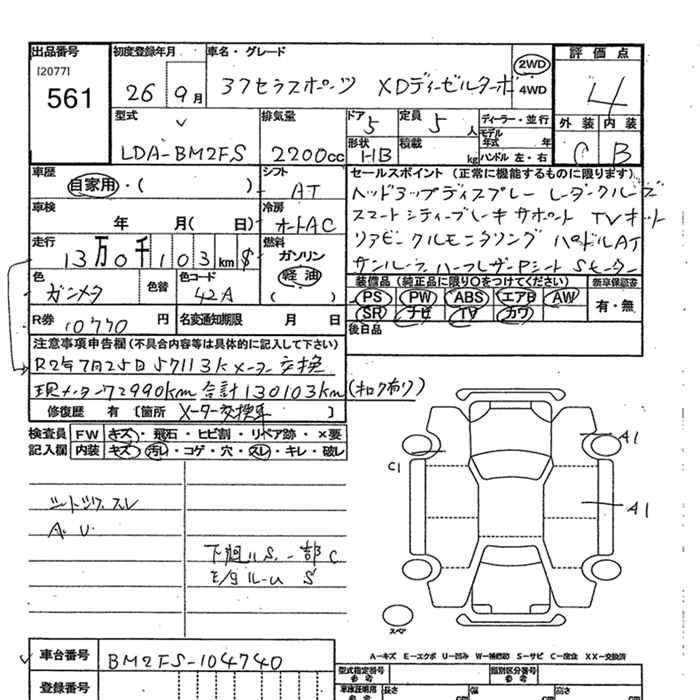 出品番号 初度登録年月 車名・グレード 評価点
[2077]
561 26 9月 アクセラスポーツ XDディーゼルターボ 2WD 4WD 4
型式 排気量 ドア 5 定員 5 人 ディーラー・並行 外装 内装
モデル年式 年
LDA-BM2FS 2200cc 形状 HB 積載 kg ハンドル 左・右 C B
車歴 シフト セールスポイント (正常に機能するものに限ります)
自家用・( ) AT ヘッドアップディスプレー レーダークルーズ
車検 冷房 スマートシティーブレーキサポート TVキット
年 月( 日) オートAC リアビークルモニタリング パドルAT
走行 燃料 サンルーフ ハーフレザーPシート Sモーター
13万0千103km $ ガソリン
軽油 装備品 (純正品に限り○をつけてください) 新車保証書
色 色替 色コード ( ) PS PW ABS エアB AW 有・無
ガンメタ 42A SR ナビ TV カワ
R券 10770円 名変通知期限 月 日 後日品
注意事項申告欄(不具合内容等は具体的に記入して下さい)
R2年7月25日 57113K メーター交換
現メーター72990km 合計130103km (キロク有り)
修復歴 有 [箇所 メーター交換車 ]
検査員 FW キズ・飛石・ヒビ割・リペア跡・×要
記入欄 内装 キズ・汚レ・コゲ・穴・スレ・キレ・破レ
A1
C1
シートシワ、スレ
A1
A. U.
下廻りS. 一部C
E/gルーム S
スペア
A-キズ E-エクボ U-凹み W-補修跡 S-サビ C-腐食 XX-交換済
車台番号 BM2FS-104740
型式指定番号 参考 類別区分番号 参考
登録番号 車庫証明用 参考 長さ cm 幅 cm 高さ cm